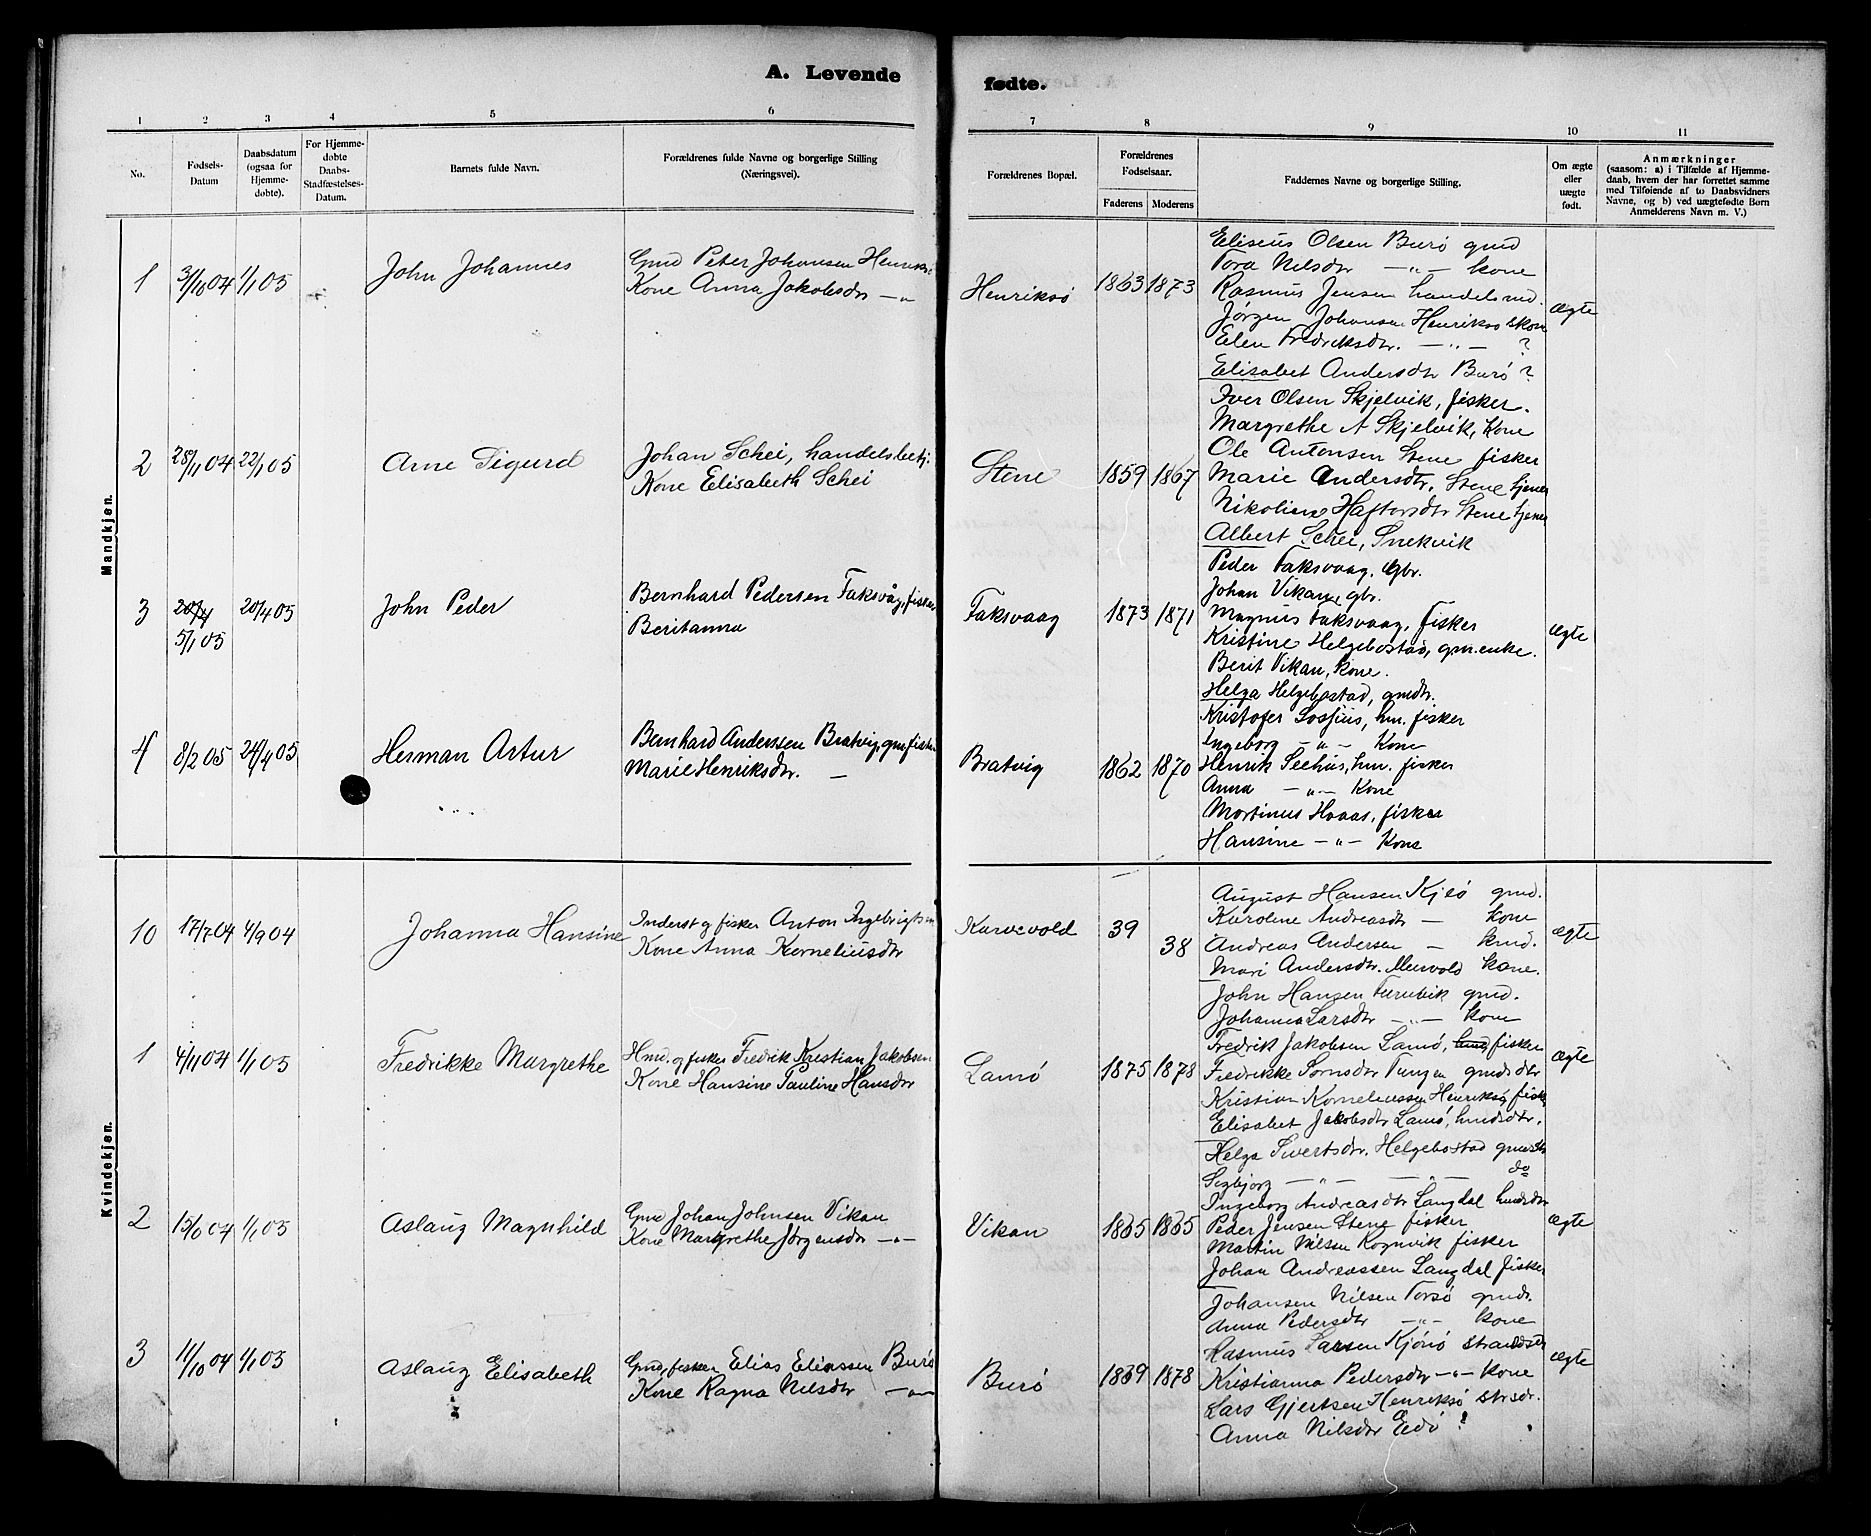 A. Levende
fødte.
1 2 3 4 5 6
7 8 9 10 11
No.
Fødsels-
Datum
Daabsdatum
(ogsaa for
Hjemme-
døbte).
For Hjemme-
døbte
Daabs-
Stadfæstelses-
Datum.
Barnets fulde Navn.
Forældrenes fulde Navne og borgerlige Stilling
(Næringsvei).
Forældrenes Bopæl.
Forældrenes
Fødselsaar.
Faderens Moderens
Faddernes Navne og borgerlige Stilling.
Om ægte
eller
uægte
født.
Anmærkninger
(saasom: a) i Tilfælde af Hjemme-
daab, hvem der har forrettet samme
med Tilføiende af to Daabsvidners
Navne, og b) ved uægtefødte Børn
Anmelderens Navn m. V.)
Mandkjøn.
1 3/10 04 1/1 05 John Johannes
Gmd Peter Johansen Henriksø
Kone Anna Jakobsdtr -"-
Henriksø 1863 1873 ægte
Eliseus Olsen Burø gmd
Tora Nilsdtr -"- kone
Rasmus Jensen handelsmd.
Jørgen Johansen Henriksø
Elen Fredriksdtr. -"- ?
Elisabet Andersdtr Burø ?
2 28/11 04 22/1 05 Arne Sigurd
Johan Schei, handelsbetj.
Kone Elisabeth Schei
Stene 1859 1867
Iver Olsen Skjelvik, fisker.
Margrethe A Skjelvik, Kone
Ole Antonsen Stene fisker
Marie Andersdtr. Stene tjener
Nikoline Haftorsdtr Stene tjener
Albert Schei, Snekvik
3 5/1 05 20/4 05 John Peder
Bernhard Pedersen Faksvåg, fisker
Beritanna
Faksvaag 1873 1871 ægte
Peder Faksvaag, gbr.
Johan Vikan, gbr.
Magnus Faksvaag, fisker
Kristine Helgebostad, gm.enke.
Berit Vikan, kone.
Helga Helgebostad, gmdtr.
4 8/2 05 24/4 05 Herman Artur
Bernhard Anderssen Bratvig, gm. fisker
Marie Henriksdtr. —
Bratvig 1862 1870
Kristofer Lossius, hm. fisker
Ingeborg -"- Kone
Henrik Seehus, hm. fisker
Anna -"- Kone
Martinus Hoaas, fisker
Hansine -"- Kone
Kvindekjøn.
10 17/7 04 4/9 04 Johanna Hansine
Inderst og fisker Anton Ingebrigtsen
Kone Anna Korneliusdtr
Kurvevold 39 38 ægte
August Hansen Kjeø gmd.
Karoline Andreasdtr — kone
Andreas Andersen —
Mari Andersdtr. Meevold kone.
John Hansen Furuvik gmd.
Johanna Larsdtr -"- kone
1 4/11 04 1/1 05 Fredrikke Margrethe
Hmd. og fisker Fredrik Kristian Jakobsen
Kone Hansine Pauline Hansdtr
Lamø 1875 1878 ægte
Fredrik Jakobsen Lamø, fisker
Fredrikke Sørnsdtr Tungen gmdsdtr
Kristian Korneliussen Henriksø fisker
Elisabet Jakobsdtr Lamø, hmdsdtr.
Helga Sivertsdtr. Helgebostad gmdsdtr
Sigbjørg -"- -"- do
2 15/10 04 1/1 05 Aslaug Magnhild
Gmd Johan Johnsen Vikan
Kone Margrethe Jørgensdtr -"-
Vikan 1865 1865 ægte
Ingeborg Andreasdtr Langdal hmdsdtr
Peder Jensen Stene fisker
Martin Nilsen Rognvik fisker
Johan Andreassen Langdal fisker
Johansen Nilsen Torsø gmds.
Anna Pedersdtr -"- kone
3 11/10 04 1/1 05 Aslaug Elisabeth
Gmd, fisker Elias Eliassen Burø
Kone Ragna Nilsdtr -"-
Burø 1869 1878 ægte
Rasmus Larsen Kjørø strandsid
Kristianna Pedersdtr -"- kone
Lars Gjertsen Henriksø strsdr.
Anna Nilsdtr Eidø ?